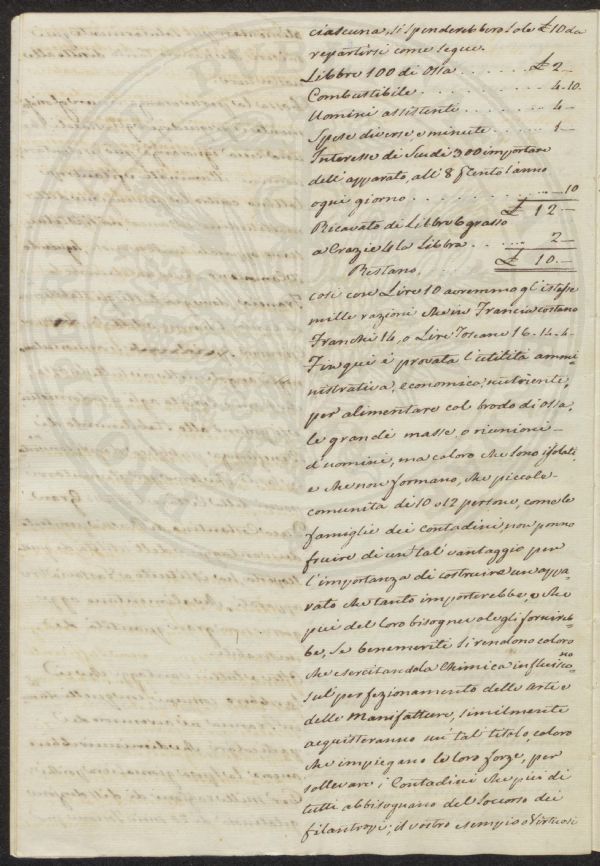 ciascuna, si spenderebbero sole £ 10 da
repartirsi come segue.
Libbre 100 di Ossa . . . . . . £ 2 —
Combustibile . . . . . . . . 4 - 10.
Uomini assistenti . . . . . . . 4 —
Spese diverse e minute . . . . . 1 —
Interesse di Scudi 300 importare
dell' apparato, all' 8 p Cento l'anno
ogni giorno . . . . . . . . . . . — 10
£ 12 —
Ricavato di Libbre 6 grasso
a Crazie 4 la Libbra . . . . . 2 —
Restano . . . £ 10. —
così con Lire 10 avremmo gl'istesse
mille razioni che in Francia costano
Franchi 14, o Lire Toscane 16 - 14 - 4 -
Fin qui è provata l'utilità ammi-
nistrativa, economica, nutriente,
per alimentare col brodo di ossa,
le grandi masse, o riunioni
d'uomini, ma coloro che sono isolati
e che non formano, che piccole
comunità di 10 o 12 persone, come le
famiglie dei Contadini non ponno
fruire di un tal vantaggio per
l'importanza di costruire un appa-
rato che tanto importerebbe, e che
più del loro bisognevole gli fornireb-
be, Se benemeriti si rendono coloro
che esercitando la Chimica influiscono
sul perfezionamento delle arti e
delle Manifatture, similmente
acquisteranno un tal titolo, coloro
che impiegano le loro forze, per
sollevare i Contadini che più di
tutti abbisognano del soccorso dei
filantropi; il vostro esempio o Virtuosi